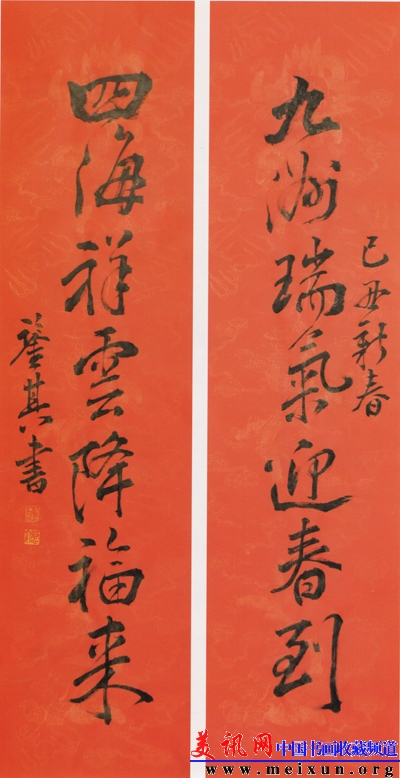 己丑新春
九洲瑞氣迎春到
四海祥雲降福来
其书
美讯网 中国书画收藏频道
www.meixun.org